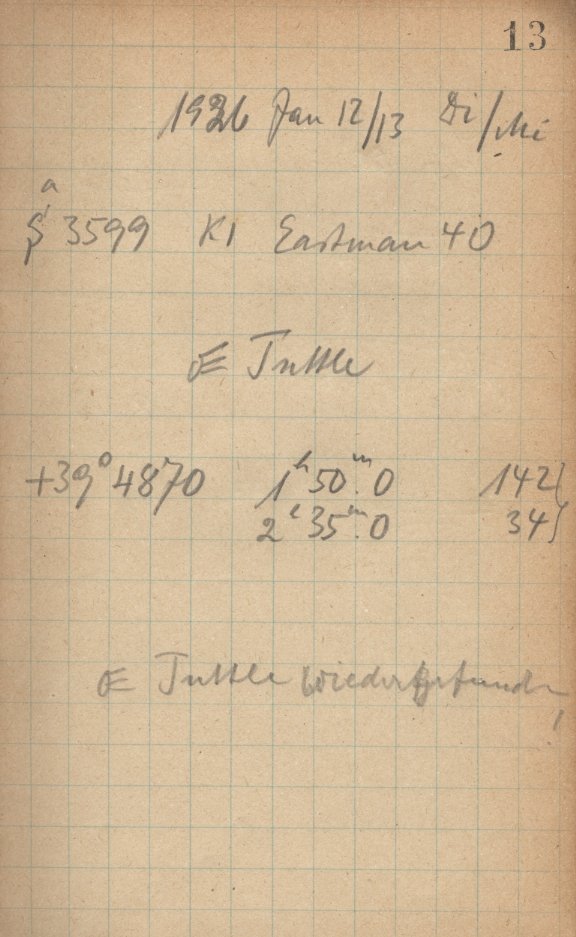 13
1926 Jan 12/13 Di/Mi
a
3599 K1 Eastman 40
Tuttle
+39° 4870 1ʰ 50ᵐ.0 142
2ʰ 35ᵐ.0 34
Tuttle wiedergefunden
!